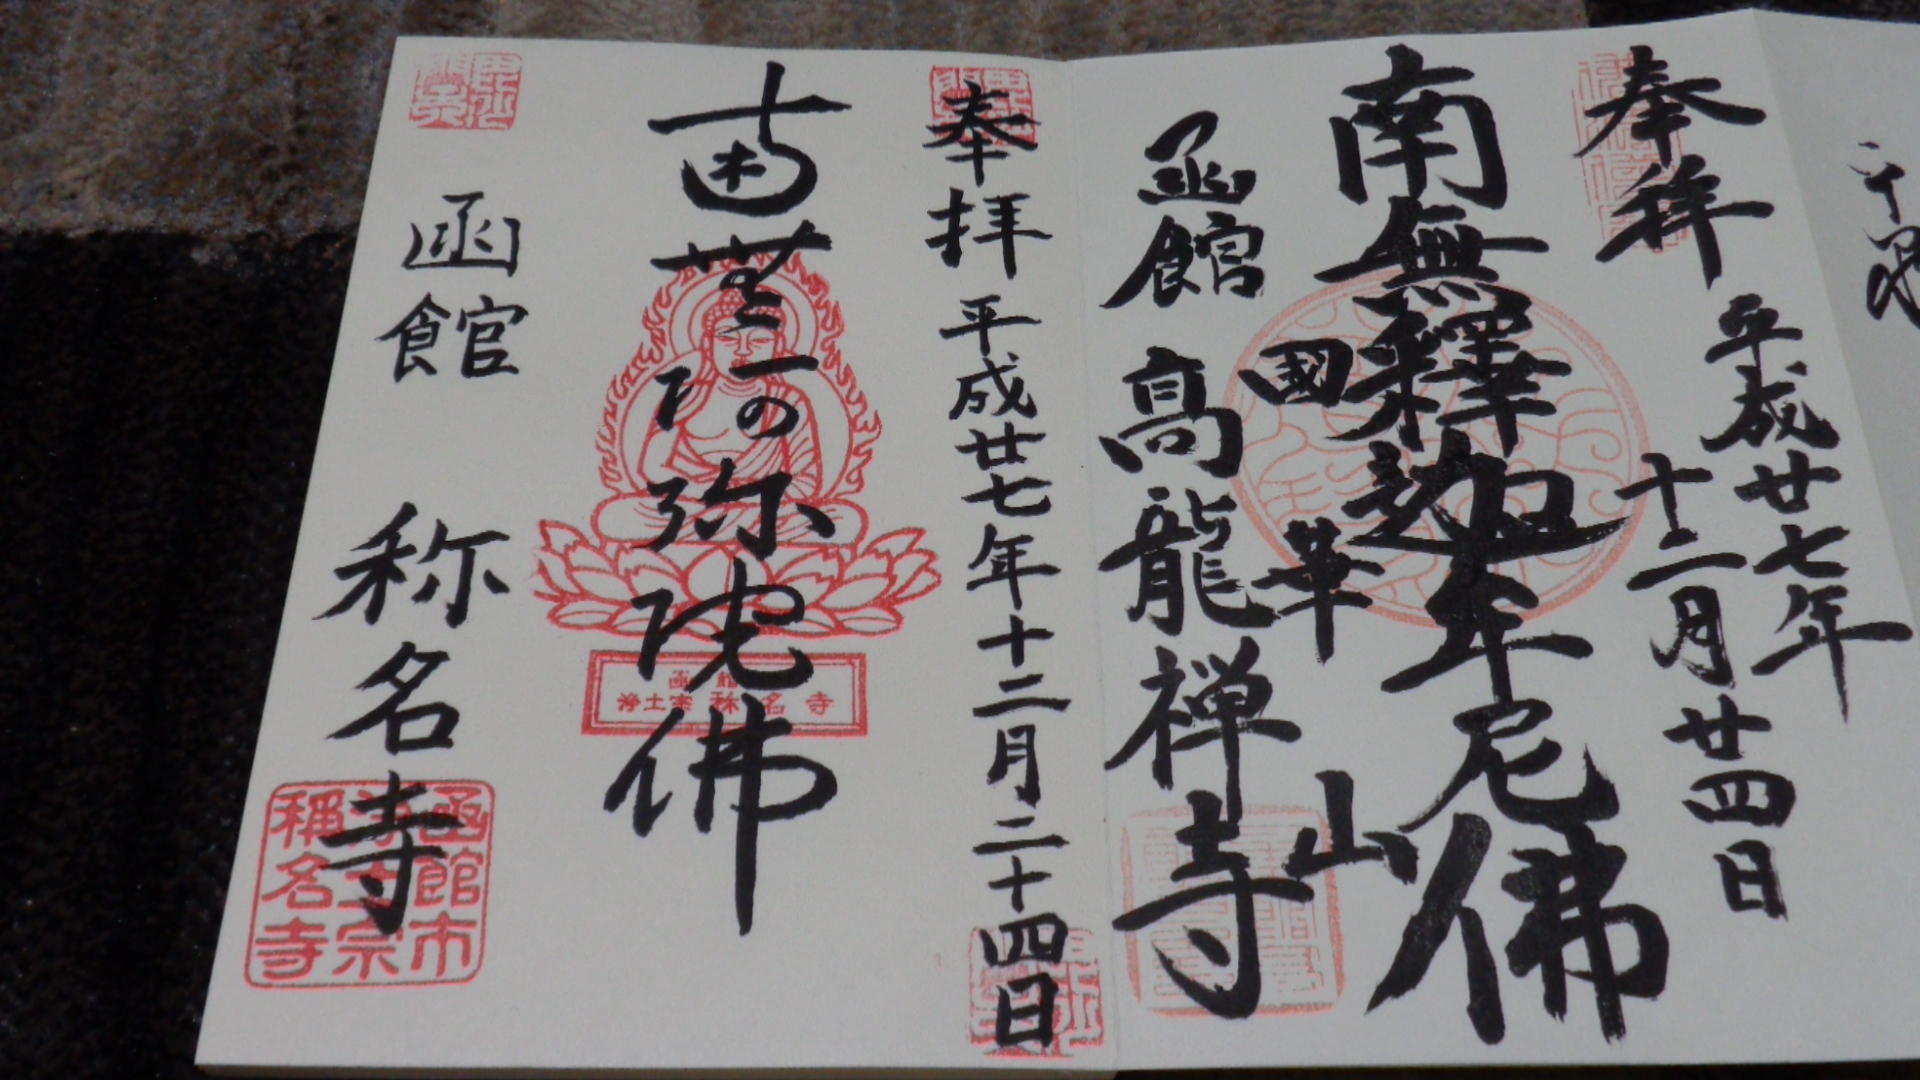 奉拜
平成廿七年
十二月廿四日
南無釋迦牟尼佛
國華山
函館 高龍禅寺
奉拝 平成廿七年十二月二十四日
南無阿弥陀佛
函館
浄土宗 称名寺
函館 称名寺
函館市
浄土宗
稱名寺